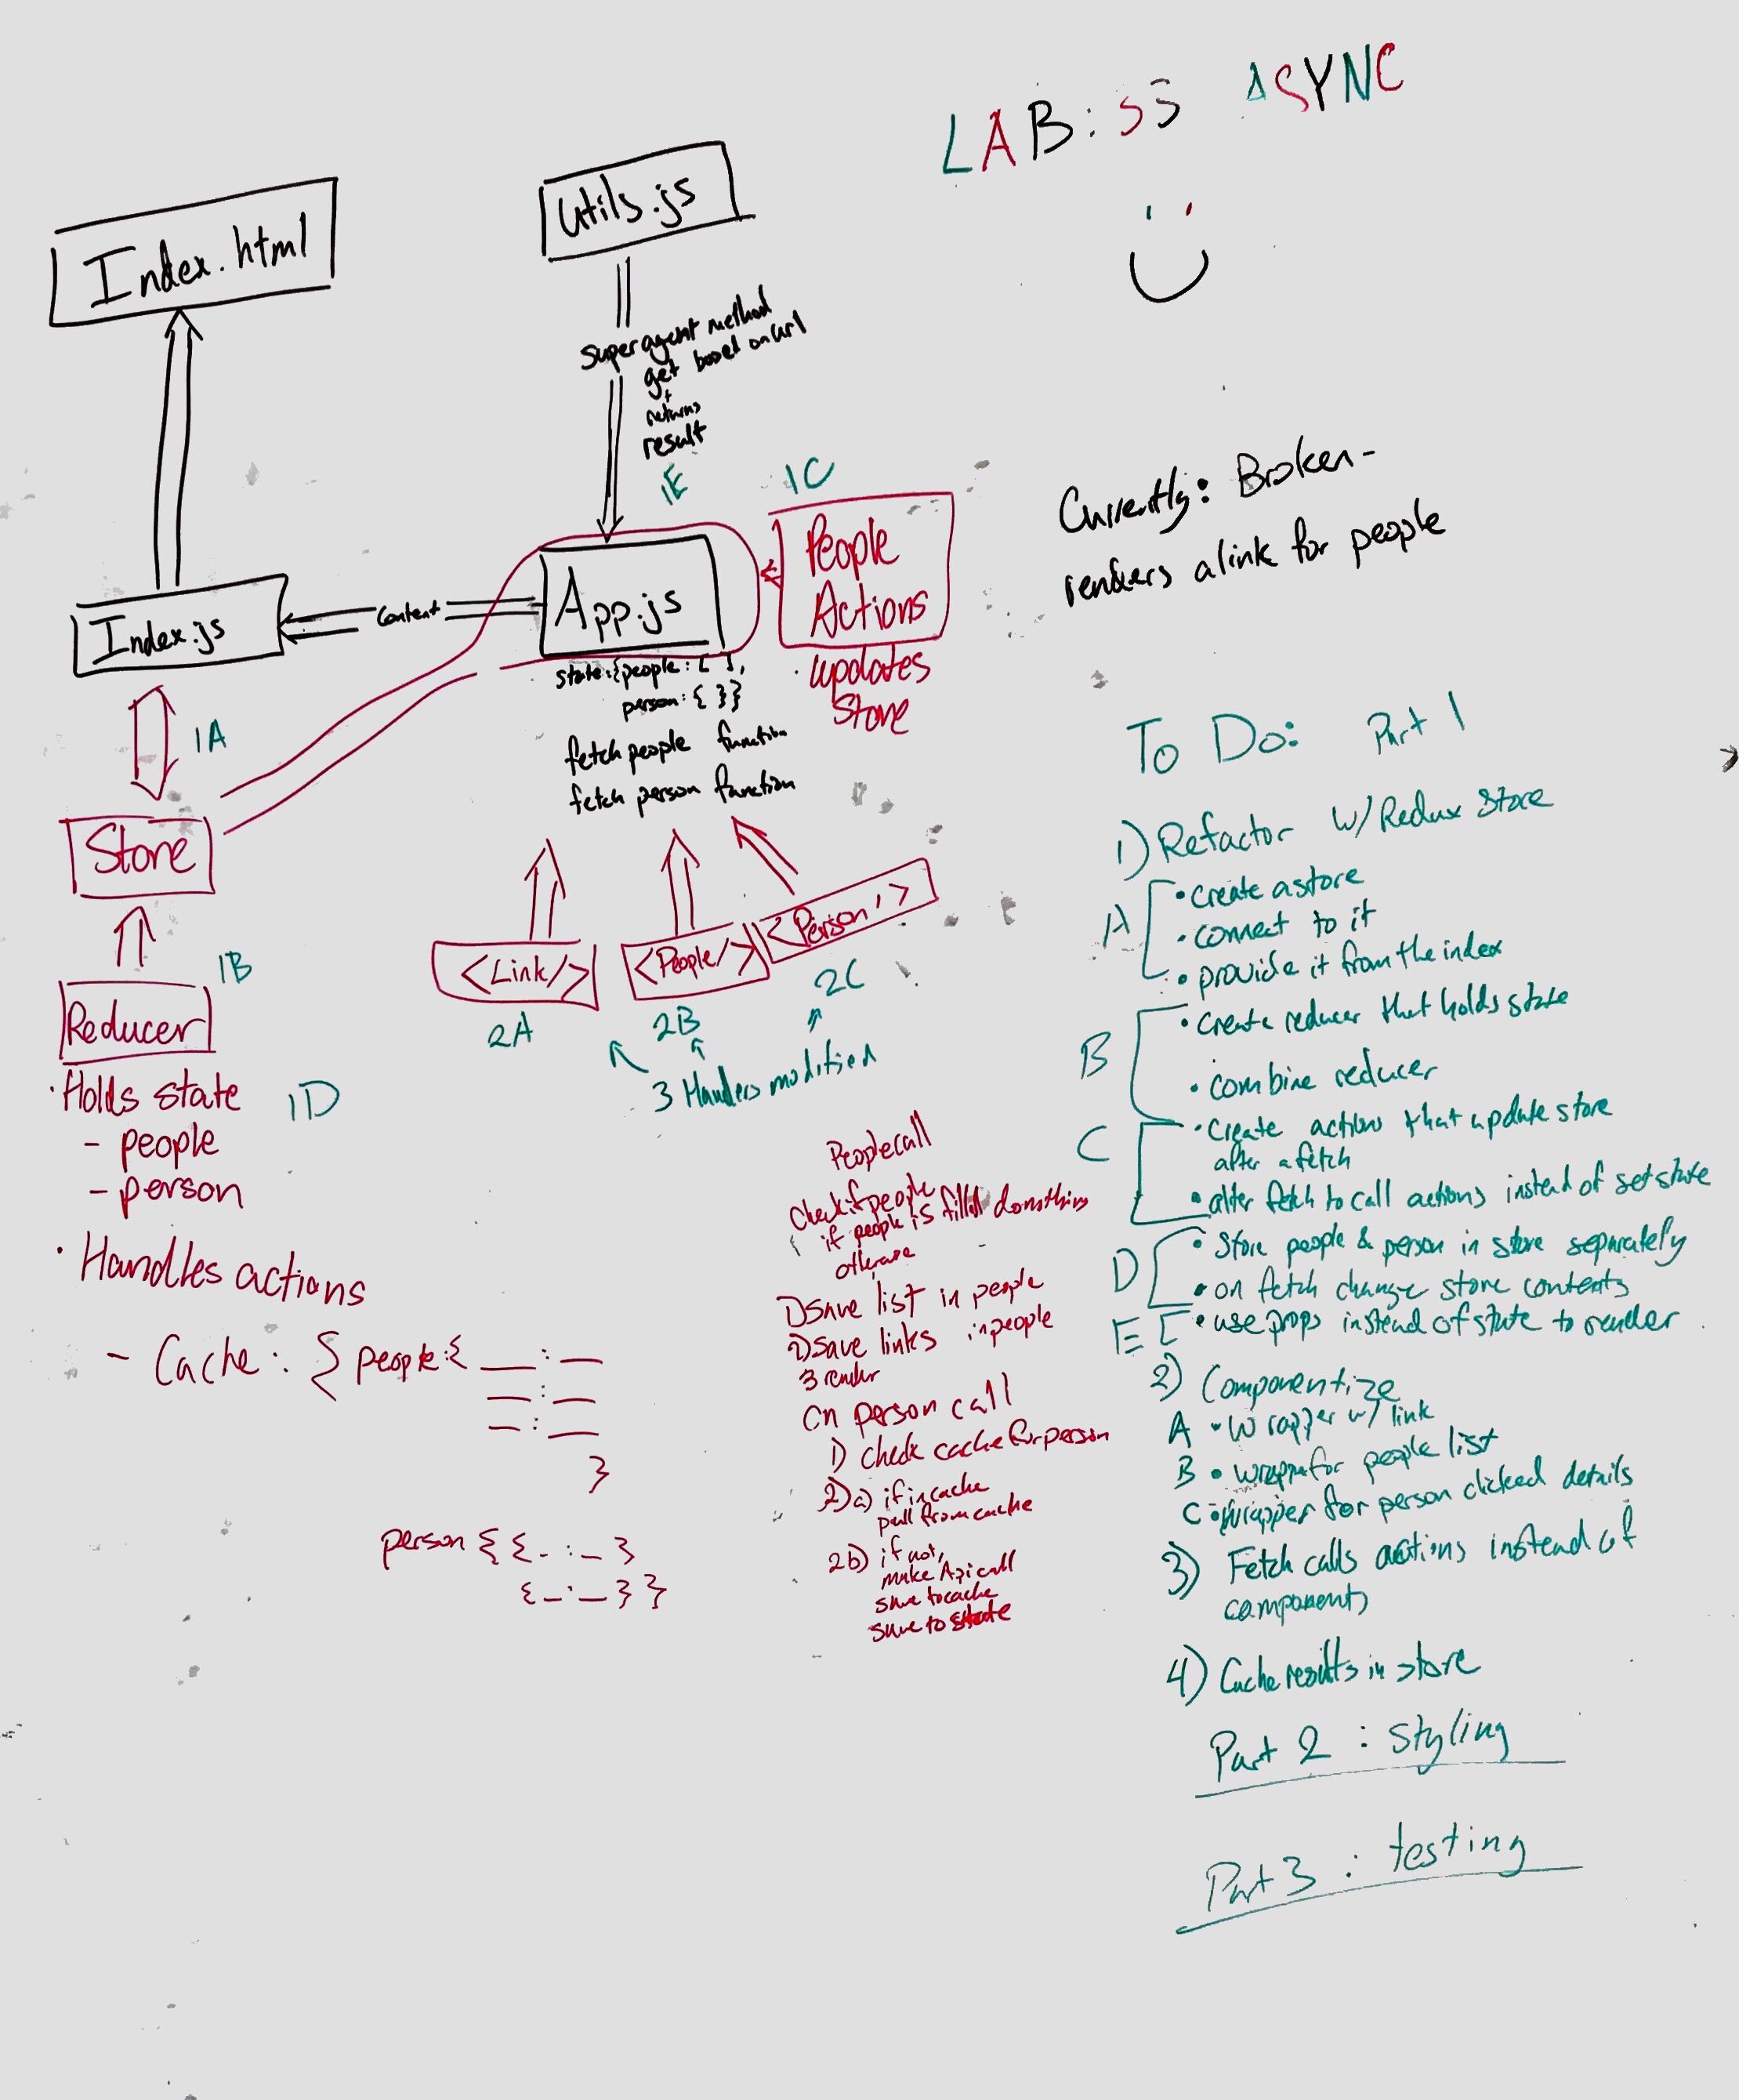 LAB: 35 ASYNC
Index.html
Utils.js
superagent method
get based on url
+
returns
result
1E
1C
People
Actions
· updates
Store
Currently: Broken-
renders a link for people
Index.js
Content
App.js
state:{people: [ ],
person: { }}
fetch people function
fetch person function
1A
Store
1B
Reducer
· Holds state
1D
- people
- person
· Handles actions
- Cache: { people: { __ : __
__ : __
__ : __
}
person { { _ : _ }
{ _ : _ } }
<Link/>
<People/>
<Person/>
2A
2B
2C
3 Handlers modified
People call
check if people
if people is filled do nothing
otherwise
1) save list in people
2) save links in people
3 render
On person call
1) check cache for person
2) a) if in cache
pull from cache
2b) if not,
make Api call
save to cache
save to state
To Do: Part 1
1) Refactor w/ Redux store
A
· create a store
· connect to it
· provide it from the index
B
· create reducer that holds state
· combine reducer
C
· Create actions that update store
after a fetch
· alter fetch to call actions instead of set state
D
· Store people & person in store separately
· on fetch change store contents
E [ · use props instead of state to render
2) Componentize
A · Wrapper w/ link
B · wrapper for people list
C · Wrapper for person clicked details
3) Fetch calls actions instead of
components
4) Cache results in store
Part 2 : styling
Part 3 : testing